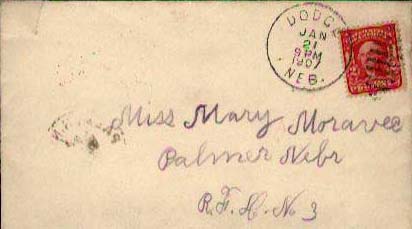 DODGE
JAN
21
9 PM
1907
NEB.
Miss Mary Moravec
Palmer Nebr
R.F.H. No 3